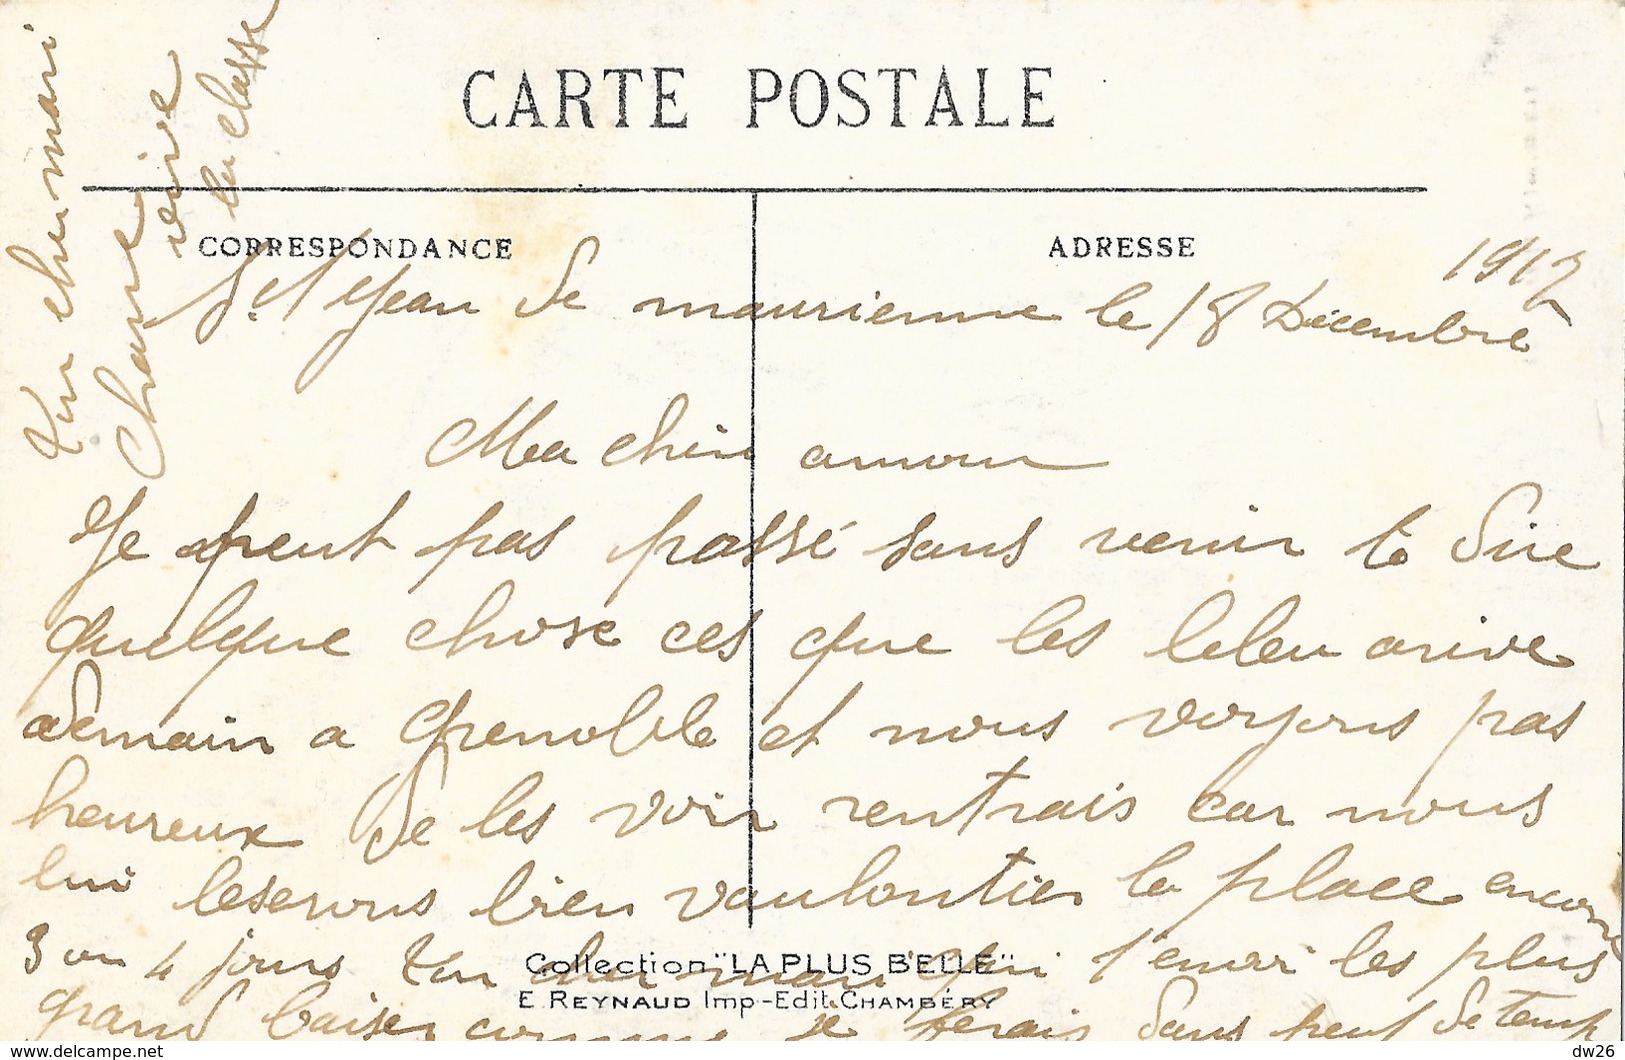 CARTE POSTALE
CORRESPONDANCE
ADRESSE
1912
St Jean de maurienne le 18 Décembre
Ma cheri amour
Je peut pas passé sans venir te dire
quelque chose ces que les bleu arive
demain a Grenoble et nous voiyons pas
heureux de les voir rentrais car nous
lui leserons bien vaulontier la place encore
3 ou 4 jours Ton cher mari qui t'envoi les plus
grand baiser comme je ferais dans peut de temp
Collection "LA PLUS BELLE"
E. REYNAUD Imp-Edit. CHAMBÉRY
Ton cher mari
vive
la classe
delcampe.net
dw26